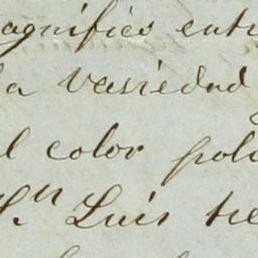 agnifica entr
la variedad
l color poli
Sn Luis tie